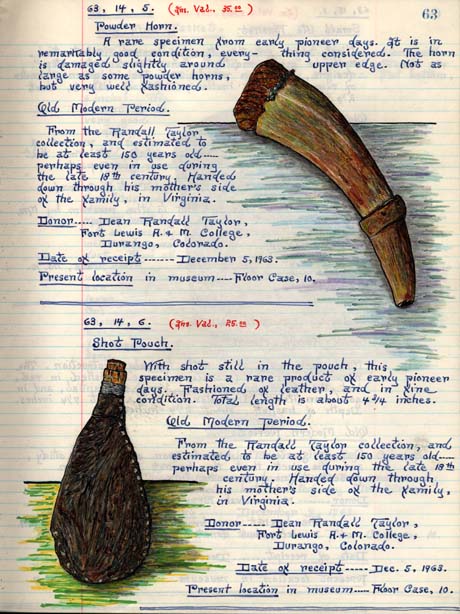 63
63, 14, 5. (Ins. Val., 35.00)
Powder Horn.
A rare specimen from early pioneer days. It is in
remarkably good condition, every-thing considered. The horn
is damaged slightly around upper edge. Not as
large as some powder horns,
but very well fashioned.
Old Modern Period.
From the Randall Taylor
collection, and estimated to
be at least 150 years old----
perhaps even in use during
the late 18th century. Handed
down through his mother's side
of the family, in Virginia.
Donor---- Dean Randall Taylor,
Fort Lewis A. & M. College,
Durango, Colorado.
Date of receipt------ December 5, 1963.
Present location in museum---- Floor Case, 10.
63, 14, 6. (Ins. Val., 25.00)
Shot Pouch.
With shot still in the pouch, this
specimen is a rare product of early pioneer
days. Fashioned of leather, and in fine
condition. Total length is about 4 3/4 inches.
Old Modern Period.
From the Randall Taylor collection, and
estimated to be at least 150 years old----
perhaps even in use during the late 18th
century. Handed down through
his mother's side of the family,
in Virginia.
Donor----- Dean Randall Taylor,
Fort Lewis A. & M. College,
Durango, Colorado.
Date of receipt----- Dec. 5, 1963.
Present location in museum---- Floor Case, 10.